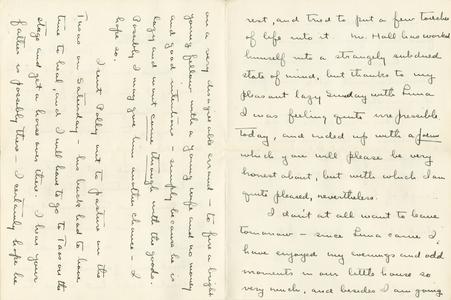 on a very disagreeable errand - to fire a bright
young fellow with a young wife and no money
and good intentions - simply because he is
lazy and wont come through with the goods.
Possibly I may give him another chance - I
hope so.
I sent Polly out to pasture on the
Truxo on Saturday - his back had to have
time to heal, and I will have to go to Taos on the
stage and get a horse over there. I hear your
father is possibly there - I certainly hope he
rest, and tried to put a few touches
of life onto it. Mr. Hall has worked
himself into a strangely subdued
state of mind, but thanks to my
pleasant lazy Sunday with Luna
I was feeling quite irrepressible
today, and ended up with a poem
which you will please be very
honest about, but with which I am
quite pleased, nevertheless.
I don't at all want to leave
tomorrow - since Luna came I
have enjoyed my evenings and odd
moments in our little house so
very much, and besides I am going